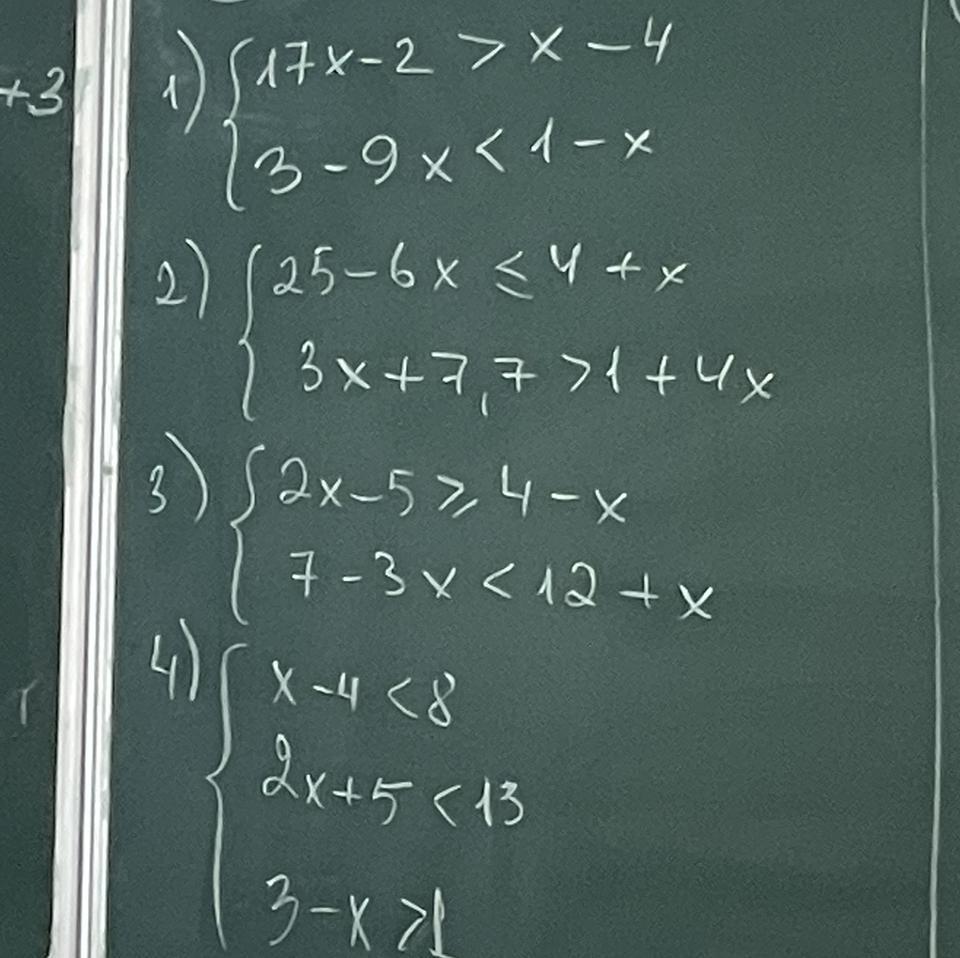 +3
1) { 17x-2 > x-4
3-9x < 1-x
2) { 25-6x ≤ 4+x
3x+7,7 > 1+4x
3) { 2x-5 ≥ 4-x
7-3x < 12+x
4) { x-4 < 8
2x+5 < 13
3-x > 1